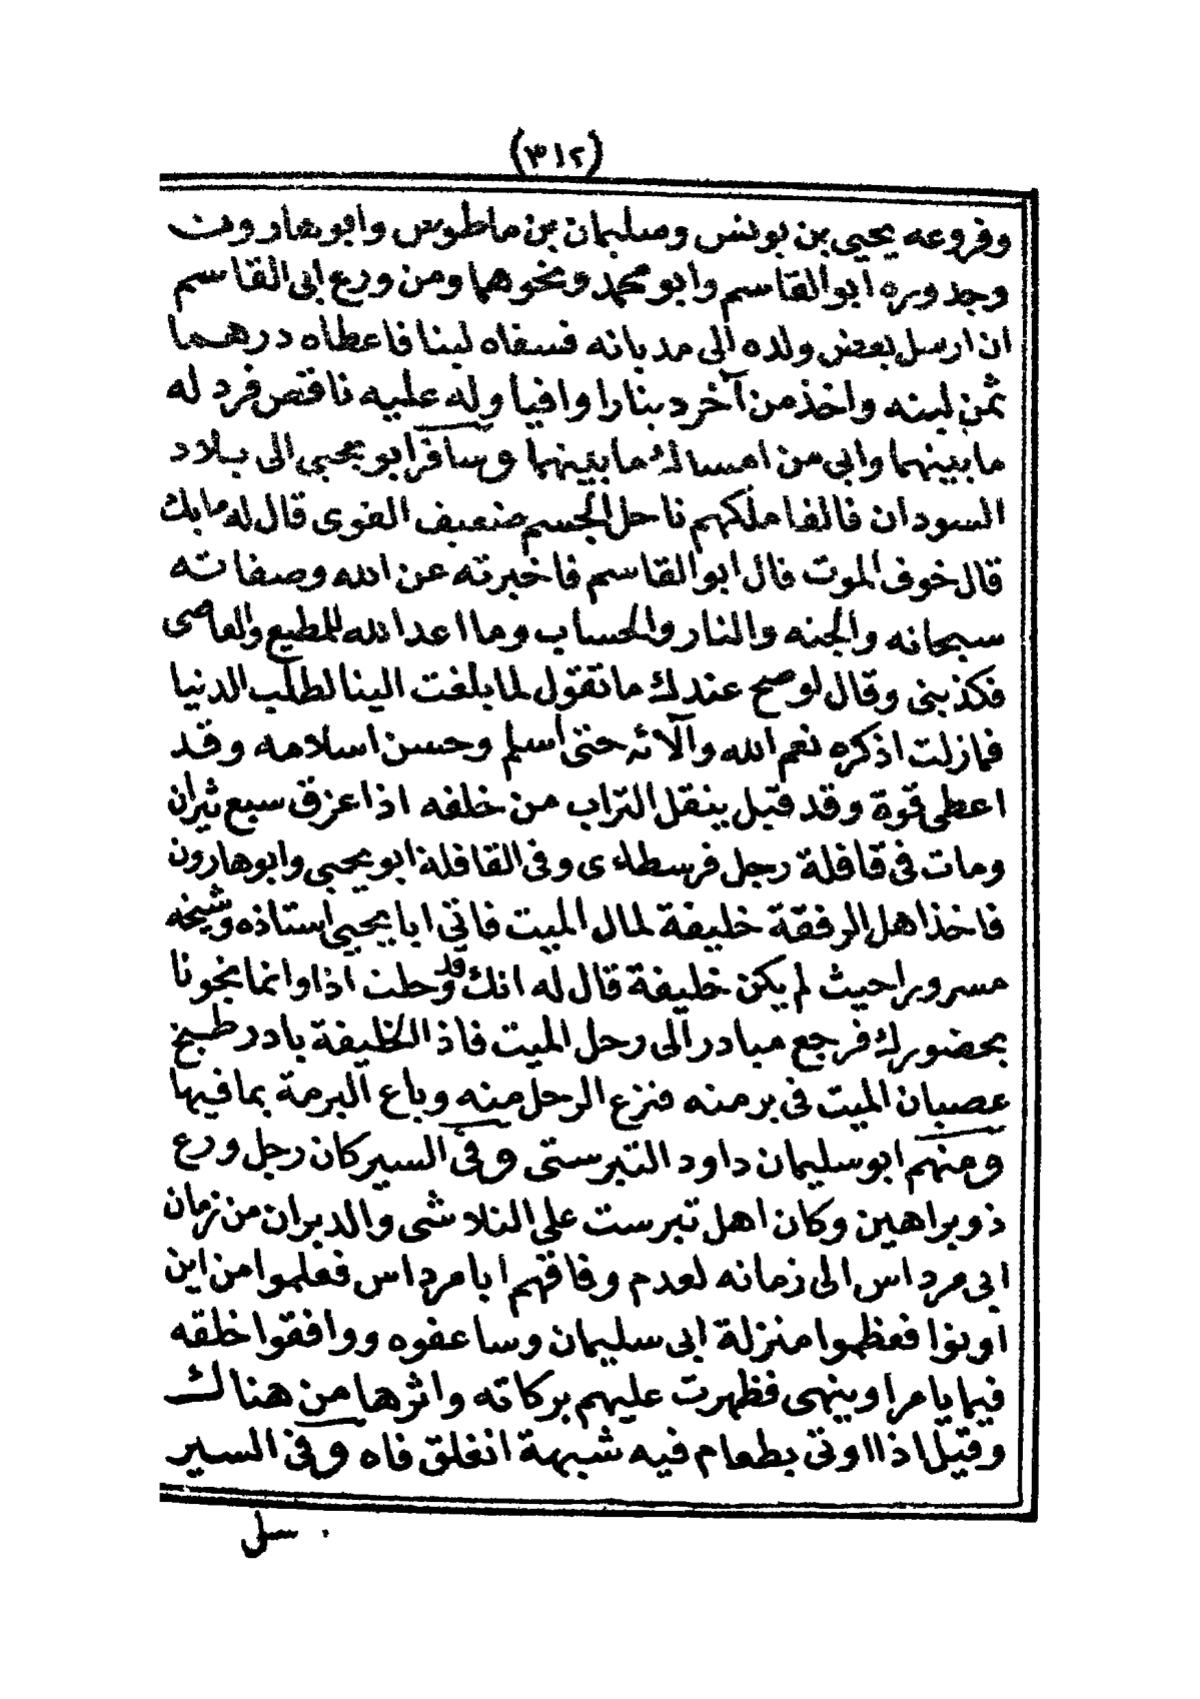 (٣١٢)
وفروعه يحيى بن يونس وسليمان بن ماطوس وابوهارون
وجدوره ابوالقاسم وابو محمد ونحوهما ومن ورع ابى القاسم
ان ارسل بعض ولده الى مديانه فسقاه لبنا فاعطاه درهما
ثمن لبنه واخذ من آخر دينارا وافيا وله عليه ناقص فرد له
مابينهما وابى من امساك مابينهما وسافر ابو يحيى الى بلاد
السودان فالفا ملكهم ناحل الجسم ضعيف القوى قال له مابك
قال خوف الموت قال ابوالقاسم فاخبرته عن الله وصفاته
سبحانه والجنه والنار والحساب وما اعد الله للمطيع والعاصى
فكذبنى وقال لو صح عندك ماتقول لما بلغت الينا لطلب الدنيا
فمازلت اذكره نعم الله وآلائه حتى اسلم وحسن اسلامه وقد
اعطى قوة وقد قيل ينقل التراب من خلفه اذا عزق سبع ثيران
ومات فى قافلة رجل فرسطاءى وفى القافلة ابو يحيى وابوهارون
فاخذ اهل الرفقة خليفة لمال الميت فاتى ابا يحيى استاذه وشيخه
مسرورا حيث لم يكن خليفة قال له انك قد وحلت اذا وانما نجونا
بحضورك فرجع مبادرا الى رحل الميت فاذ الخليفة بادر طبخ
عصبان الميت فى برمنه فنزع الرحل منه وباع البرمة بمافيها
ومنهم ابوسليمان داود التبرستى وفى السير كان رجل ورع
ذو براهين وكان اهل تبرست على التلاشى والدبران من زمان
ابى مرداس الى زمانه لعدم وفاقهم ابا مرداس فعلموا من اين
اوتوا فعظموا منزلة ابى سليمان وساعفوه ووافقوا خلقه
فيما يامر اوينهى فظهرت عليهم بركاته واثرها من هنالك
وقيل اذا اوتى بطعام فيه شبهة انغلق فاه وفى السير